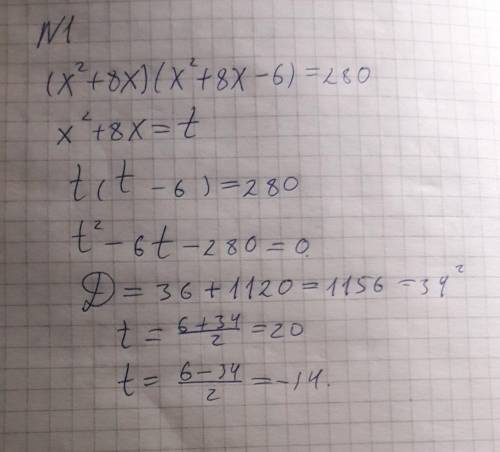 N1
(x²+8x)(x²+8x-6)=280
x²+8x=t
t(t-6)=280
t²-6t-280=0
D=36+1120=1156=34²
t=\frac{6+34}{2}=20
t=\frac{6-34}{2}=-14.